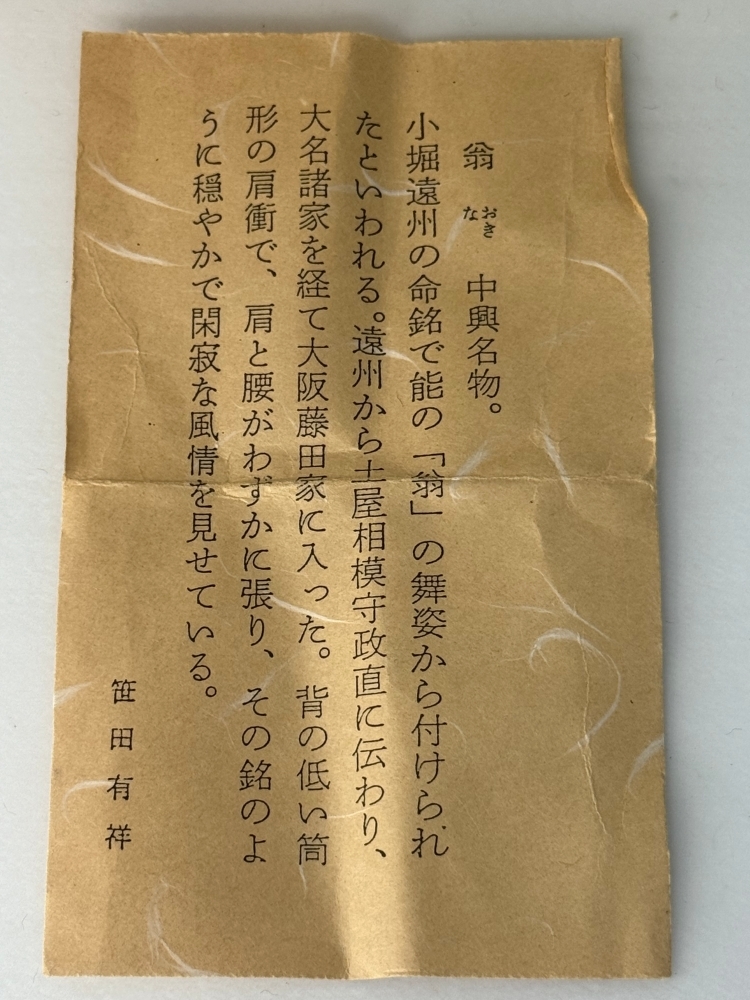 翁 おきな 中興名物。
小堀遠州の命銘で能の「翁」の舞姿から付けられ
たといわれる。遠州から土屋相模守政直に伝わり、
大名諸家を経て大阪藤田家に入った。背の低い筒
形の肩衝で、肩と腰がわずかに張り、その銘のよ
うに穏やかで閑寂な風情を見せている。
笹田有祥